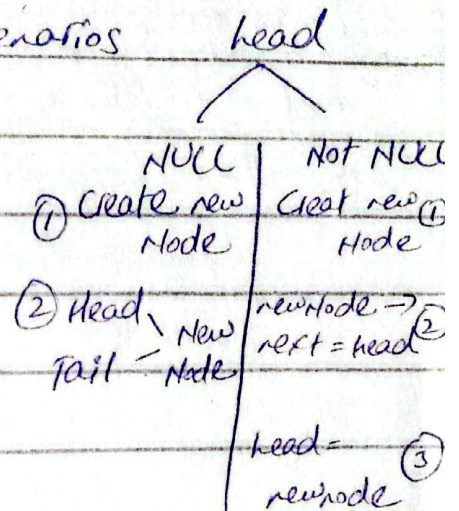 enarios head
NULL
① Create new
Node
② Head
Tail
New
Node
Not NULL
Creat new ①
Node
newNode →
next = head ②
head = ③
newnode